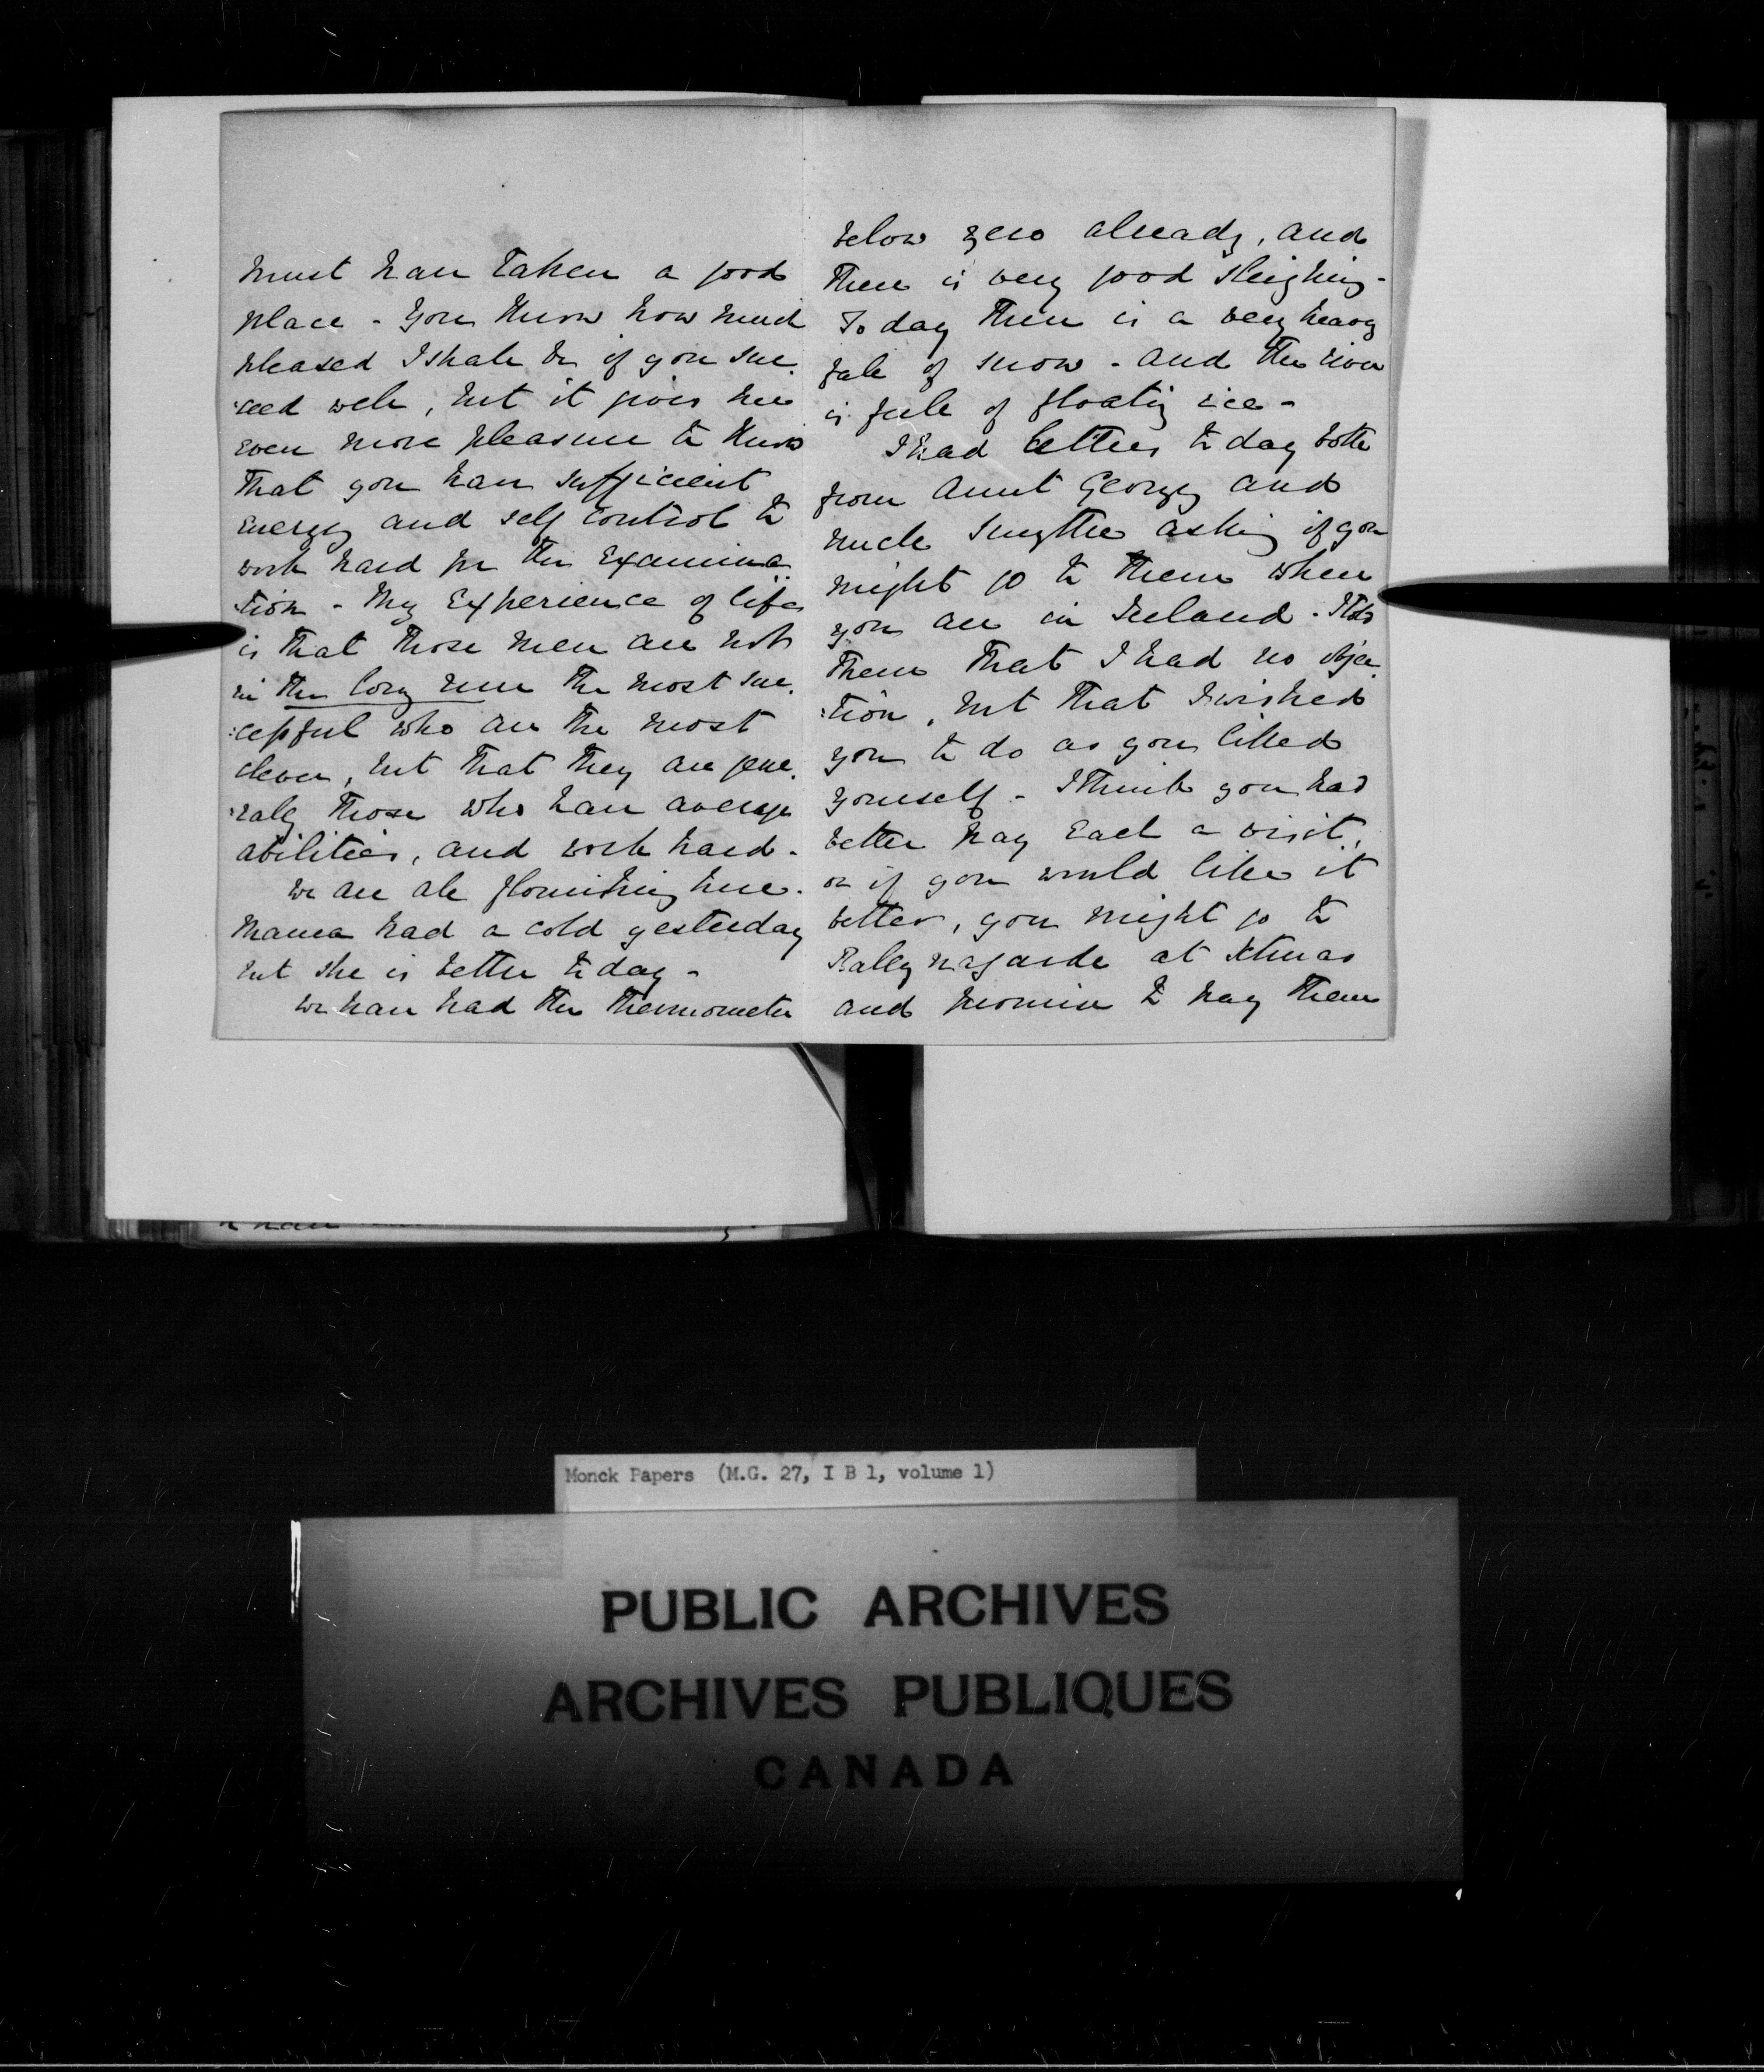 must have taken a good
place - You know how much
pleased I shall be if you suc.
:ceed well, but it gives me
even more pleasure to know
that you have sufficient
energy and self control to
work hard for the examina.
:tion - My experience of life
is that those men are not
in the long run the most suc.
:cessful who are the most
clever, but that they are gene.
:rally those who have average
abilities, and work hard -
We are all flourishing here.
Mama had a cold yesterday
but she is better to day -
We have had the thermometer
below zero already, and
there is very good sleighing -
To day there is a very heavy
fall of snow - and the river
is full of floating ice -
I had letters to day both
from Aunt Georgy and
Uncle Smythe asking if you
might go to them when
you are in Ireland - I told
them that I had no objec.
:tion, but that I wished
you to do as you liked
yourself - I think you had
better pay each a visit,
or if you would like it
better, you might go to
at Xtmas
and promise to pay them
Monck Papers (M.G. 27, I B 1, volume 1)
PUBLIC ARCHIVES
ARCHIVES PUBLIQUES
CANADA